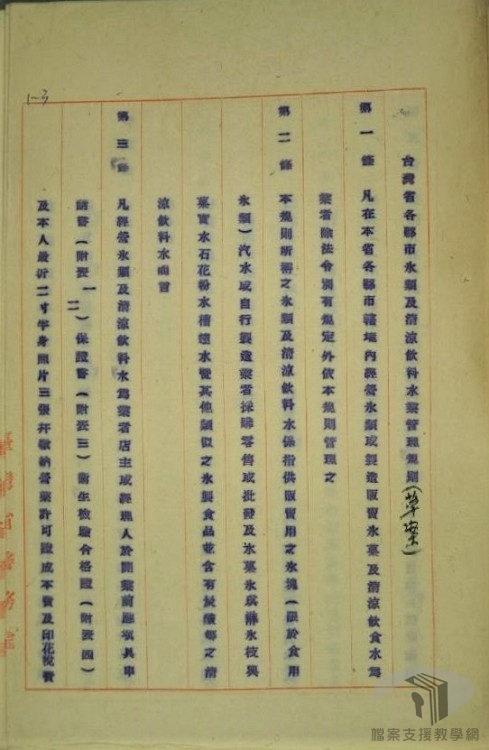 1-3
台灣省各縣市氷類及清涼飲料水業管理規則(草案)
第一條 凡在本省各縣市轄境內經營氷類或製造販賣氷菓及清涼飲食水爲
業者除法令別有規定外依本規則管理之
第二條 本規則所稱之氷類及清涼飲料水係指供販賣用之氷塊(限於食用
氷類)汽水或自行製造業者採購零售或批發及氷菓氷淇淋氷枝與
菓實水石花粉水橘逑水暨其他類似之氷製食品並含有炭酸鄉之清
涼飲料水而言
第三條 凡經營氷類及清涼飲料水爲業者店主或經理人於開業前應填具申
請書(附表一二)保證書(附表三)衛生檢驗合格證(附表四)
及本人最近二寸半身照片三張幷繳納營業許可證成本費及印花稅費
檔案支援教學網